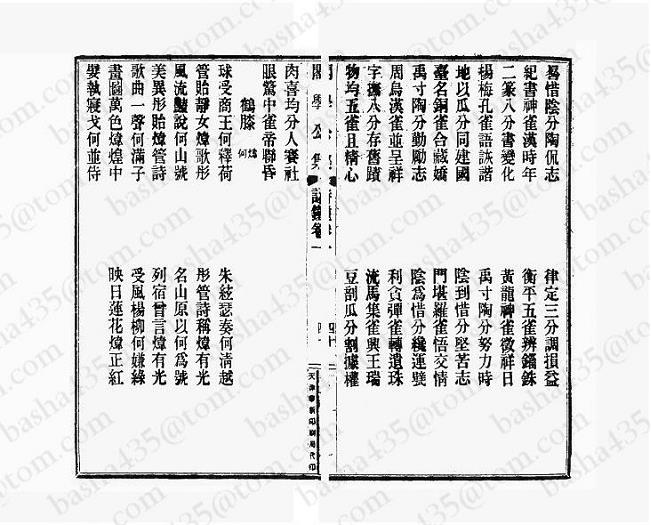 易惜陰分陶侃志　律定三分調損益
紀書神雀漢時年　衡平五雀辨錙銖
二篆八分書變化　黃龍神雀徵祥日
楊梅孔雀語詼諧　禹寸陶分努力時
地以瓜分同建國　陰到惜分堅苦志
臺名銅雀合藏嬌　門堪羅雀悟交情
禹寸陶分勤勵志　陰爲惜分纔連璧
周烏漢雀並呈祥　利貪彈雀轉遺珠
字分存舊蹟　流集雀興王瑞
物均五雀且精心　豆剖瓜分割據權
學公集　詩鐘卷一
天津華新印刷局代印
肉喜均分人宰社
眼驚中雀帝聯昏
鶴膝　煒何
球受商王何釋荷　朱絃瑟奏何清越
管貽靜女煒歌彤　彤管詩稱煒有光
風流豔說何山號　名山原以何爲號
美異彤貽煒管詩　列宿曾言煒有光
歌曲一聲何滿子　受風楊柳何嫌綠
畫圖萬色煒煌中　映日蓮花煒正紅
嬖執寢戈何並侍
basha435@tom.com